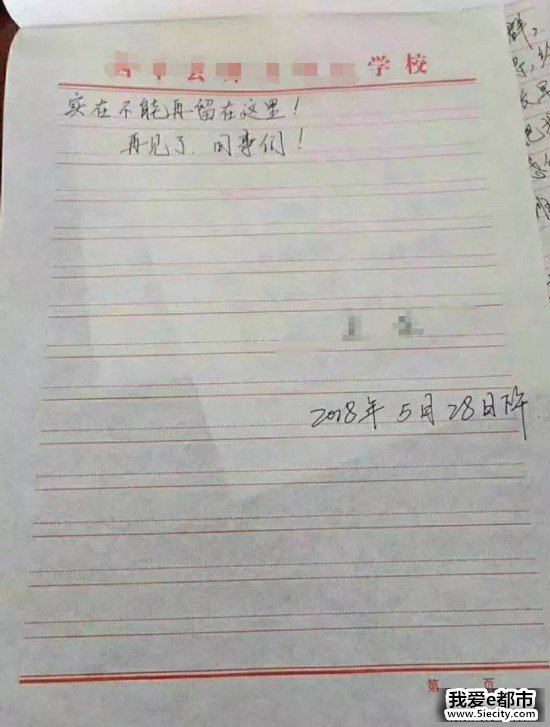 学校
实在不能再留在这里！
再见了、同事们！
2018年 5月 28日下午
第 页
我爱e都市
www.5iecity.com